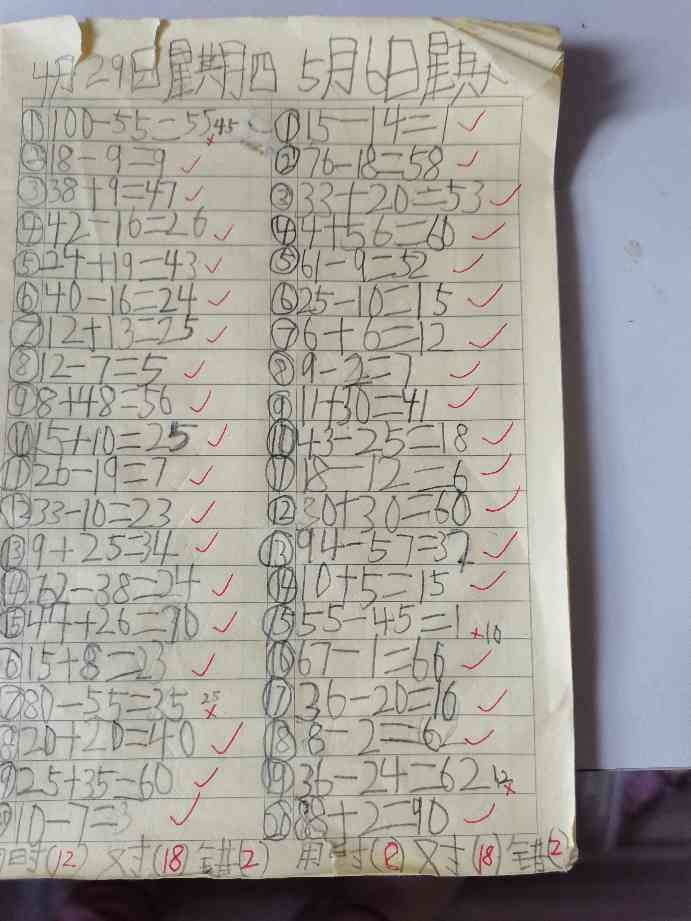 4月29日星期四
①100-55=55 45
②18-9=9
③38+9=47
④42-16=26
⑤24+19=43
⑥40-16=24
⑦12+13=25
⑧12-7=5
⑨8+48=56
⑩15+10=25
⑪26-19=7
⑫33-10=23
⑬9+25=34
⑭62-38=24
⑮44+26=70
⑯15+8=23
⑰80-55=35 25
⑱20+20=40
⑲25+35=60
⑳10-7=3
用时(12) 对(18) 错(2)
5月6日星期
①15-14=1
②76-18=58
③33+20=53
④4+56=60
⑤61-9=52
⑥25-10=15
⑦6+6=12
⑧9-2=7
⑨11+30=41
⑩43-25=18
⑪18-12=6
⑫30+30=60
⑬94-57=37
⑭10+5=15
⑮55-45=1 10
⑯67-1=66
⑰36-20=16
⑱8-2=6
⑲36-24=62 12
⑳88+2=90
用时(8) 对(18) 错(2)